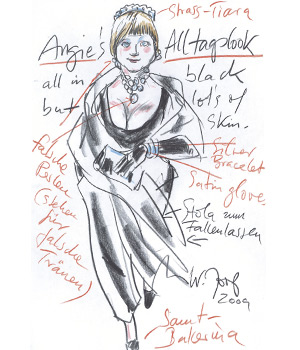 Strass-Tiara
Angie's Alltagslook
all in black
but lot's of
skin.
falsche
Perlen
(stehen
für
falsche
Tränen)
Silver
Bracelet
Satinglove
Stola zum
Fallenlassen
2009
Samt-
Balerina